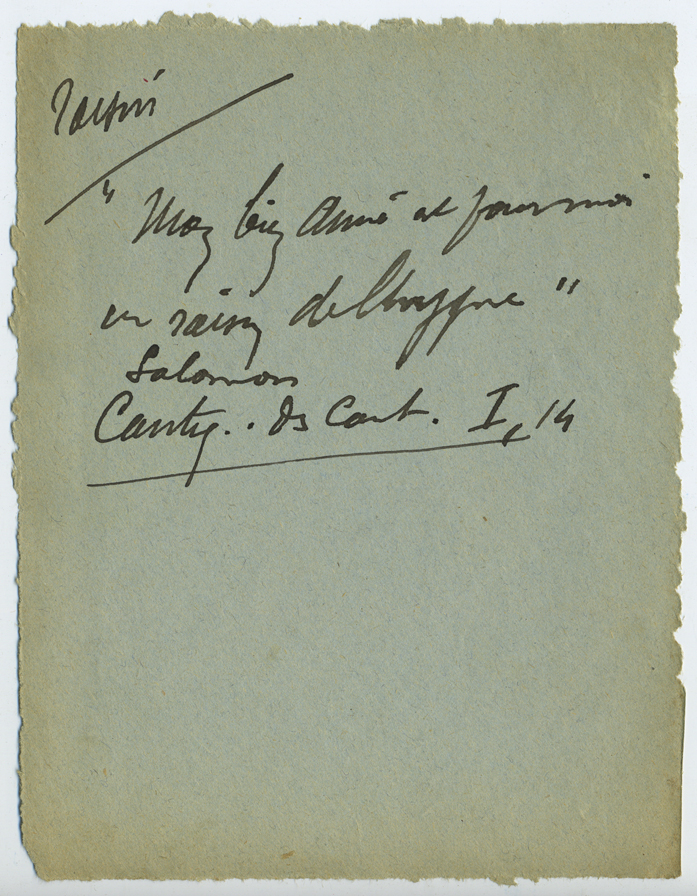 raisin
" Mon bien aimé est pour moi
un raisin de Chypre "
Salomon
Cantiq.. ds Cant. I, 14